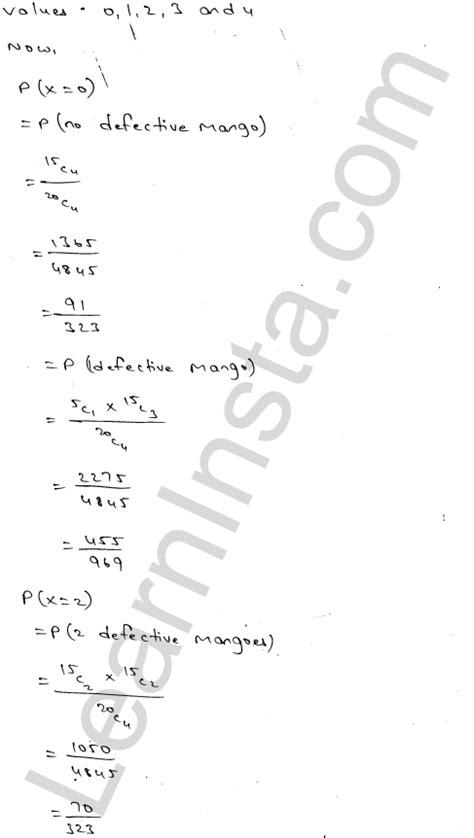 values - 0, 1, 2, 3 and 4
Now,
P(x=0)
= P(no defective Mango)
= ¹⁵C₄ / ²⁰C₄
= 1365 / 4845
= 91 / 323
= P(1defective Mango)
= ⁵C₁ × ¹⁵C₃ / ²⁰C₄
= 2275 / 4845
= 455 / 969
P(x=2)
= P(2 defective Mangoes)
= ¹⁵C₂ × ¹⁵C₂ / ²⁰C₄
= 1050 / 4845
= 70 / 323
LearnInsta.com